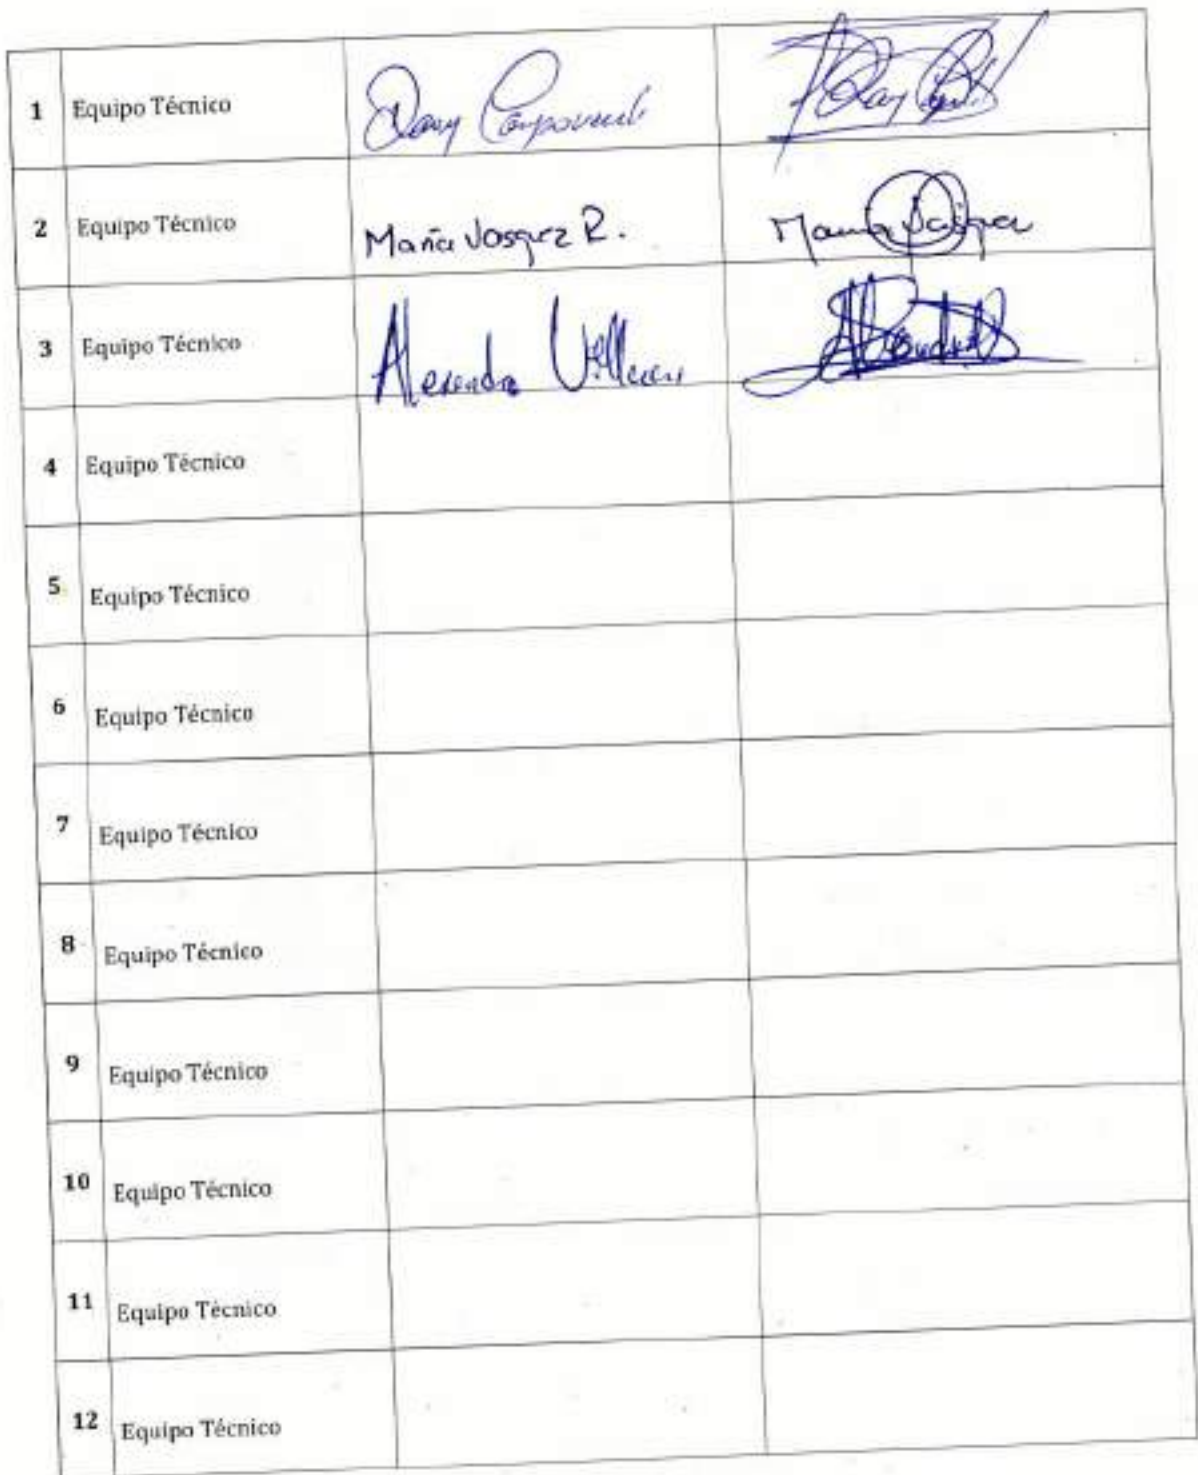 1 Equipo Técnico Dany Campoverde
2 Equipo Técnico María Vasquez R. Maria Vasquez
3 Equipo Técnico Alexandra
4 Equipo Técnico
5 Equipo Técnico
6 Equipo Técnico
7 Equipo Técnico
8 Equipo Técnico
9 Equipo Técnico
10 Equipo Técnico
11 Equipo Técnico
12 Equipo Técnico